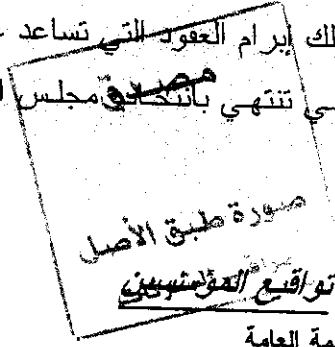 لك إبرام العقود التي تساعد
ـي تنتهي بانتخاب مجلس ا
مصدق
صورة طبق الأصل
تواقيع المؤسسين
ية العامة